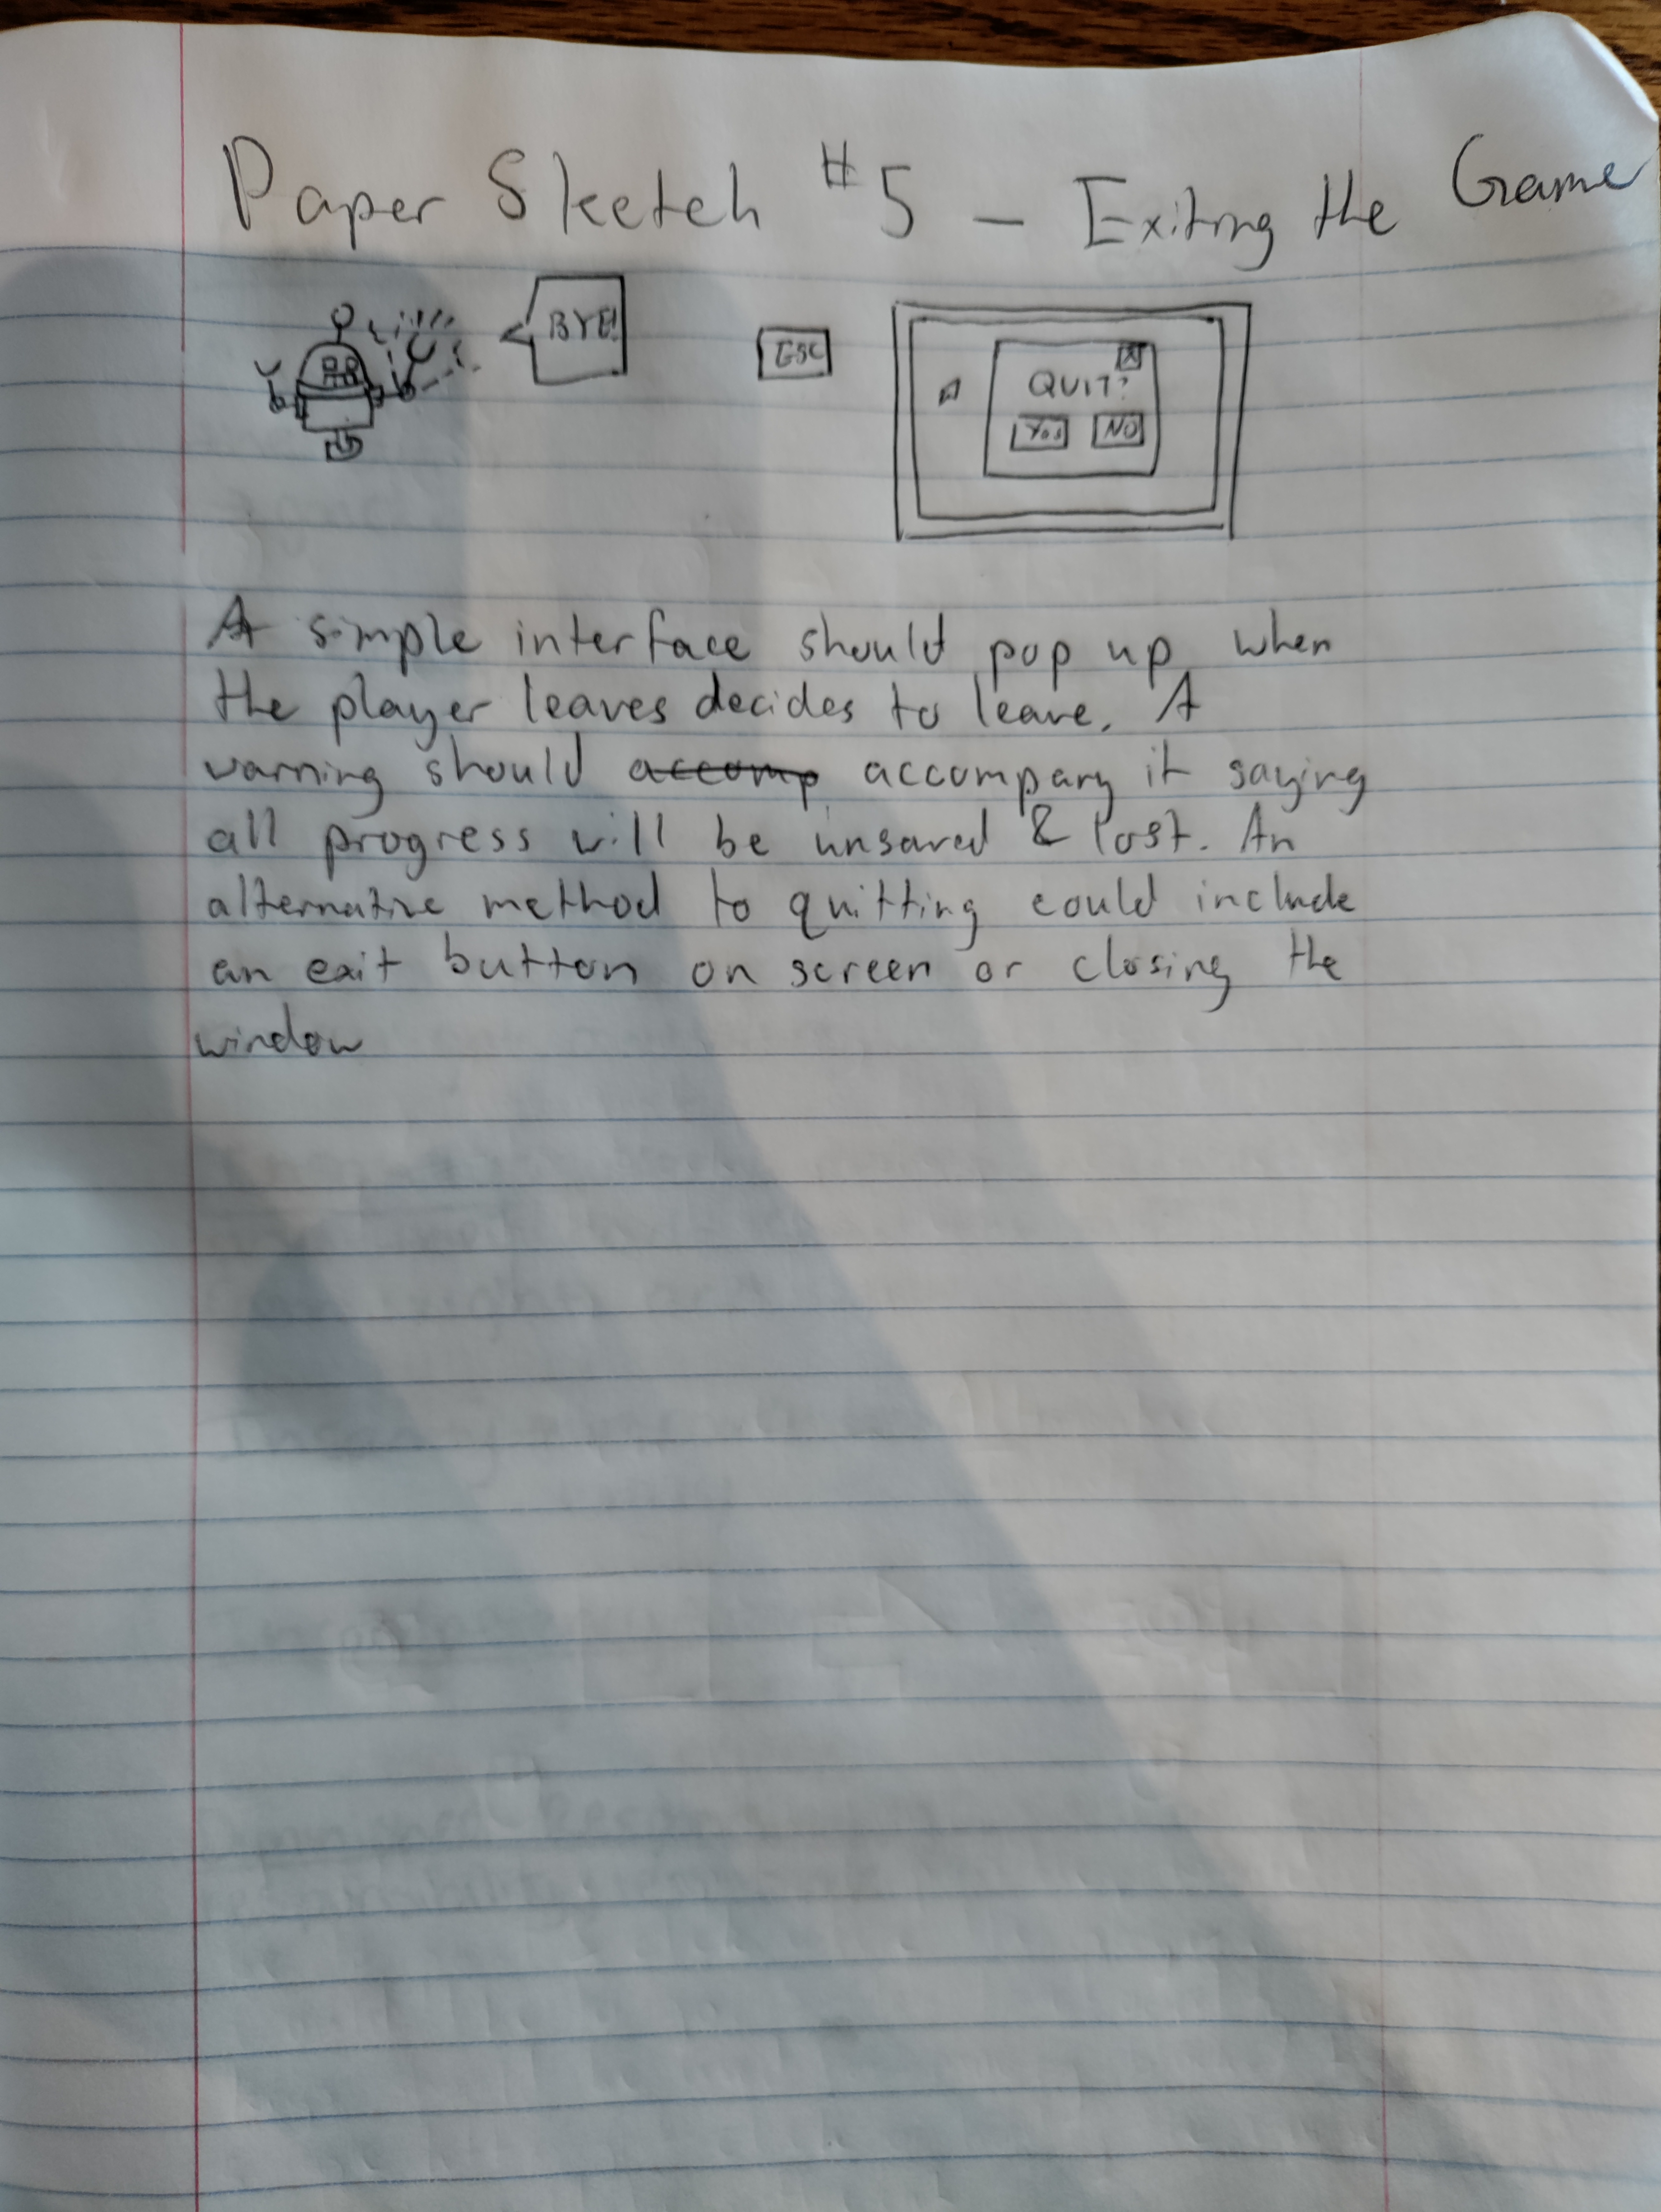 Paper Sketch #5 - Exiting the Game
BYE!
ESC
X
QUIT?
Yes NO
A simple interface should pop up when
the player leaves decides to leave. A
warning should accomp accompany it saying
all progress will be unsaved & lost. An
alternative method to quitting could include
an exit button on screen or closing the
window